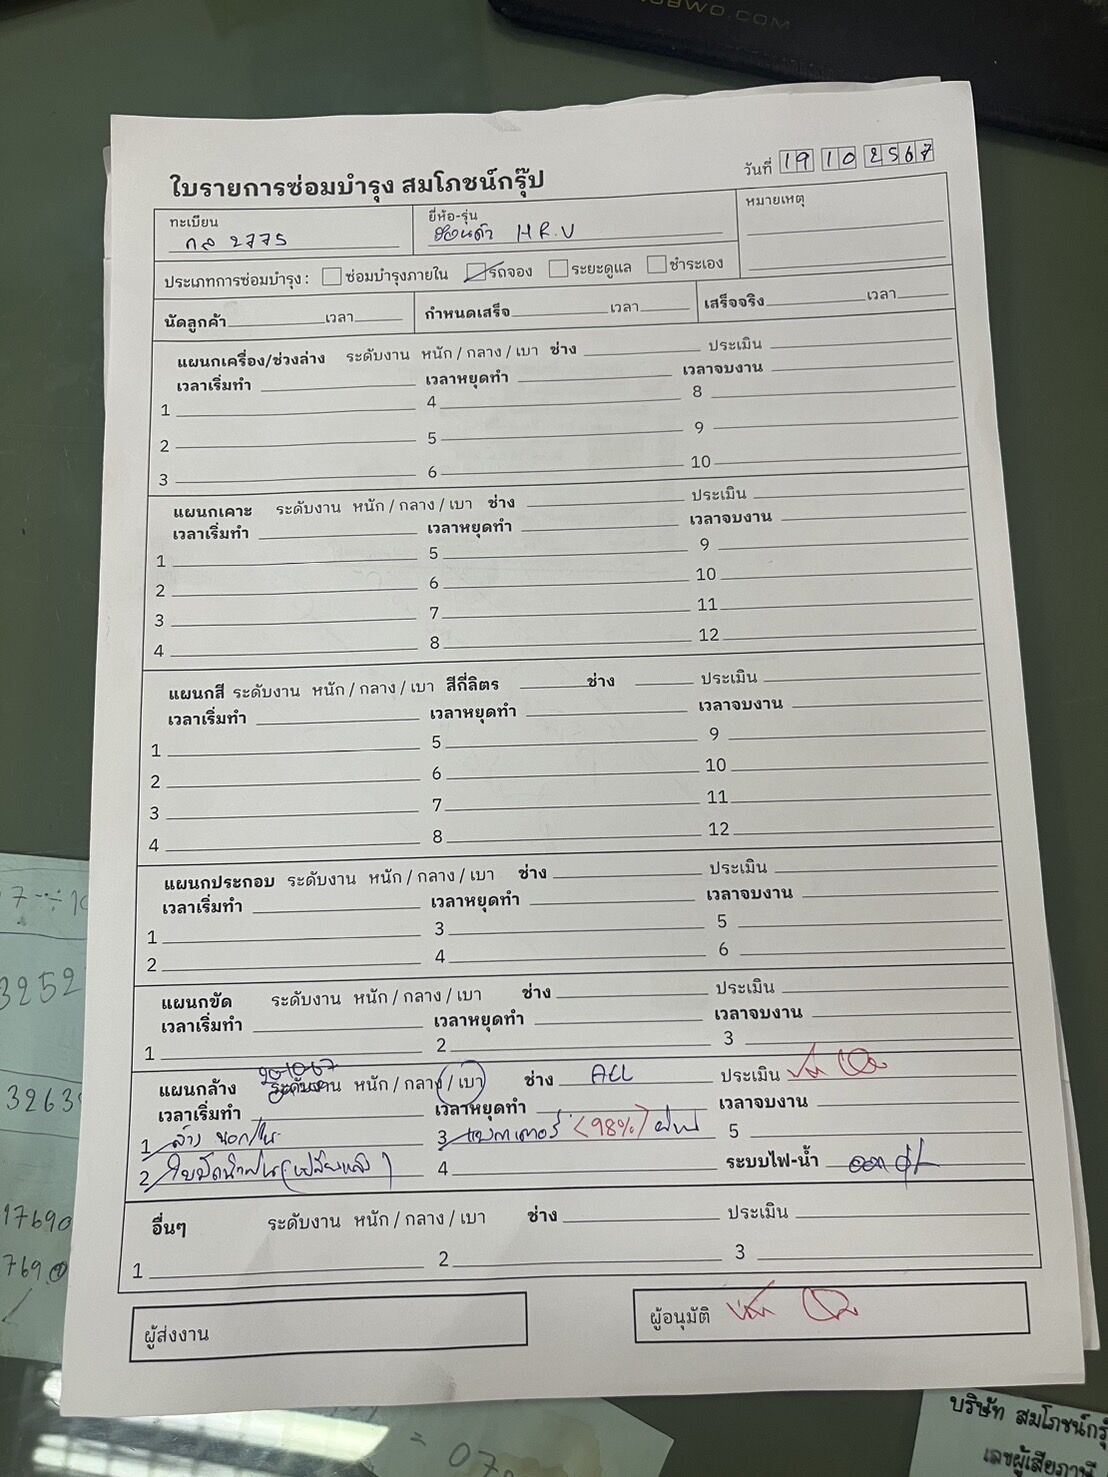 วันที่ 19 10 2567
ใบรายการซ่อมบำรุง สมโภชน์กรุ๊ป
ทะเบียน ยี่ห้อ-รุ่น หมายเหตุ
2775 ฮอนด้า H R . V
ประเภทการซ่อมบำรุง : ซ่อมบำรุงภายใน รถจอง ระยะดูแล ชำระเอง
นัดลูกค้า เวลา กำหนดเสร็จ เวลา เสร็จจริง เวลา
แผนกเครื่อง/ช่วงล่าง ระดับงาน หนัก / กลาง / เบา ช่าง ประเมิน
เวลาเริ่มทำ เวลาหยุดทำ เวลาจบงาน
1 4 8
2 5 9
3 6 10
แผนกเคาะ ระดับงาน หนัก / กลาง / เบา ช่าง ประเมิน
เวลาเริ่มทำ เวลาหยุดทำ เวลาจบงาน
1 5 9
2 6 10
3 7 11
4 8 12
แผนกสี ระดับงาน หนัก / กลาง / เบา สีกี่ลิตร ช่าง ประเมิน
เวลาเริ่มทำ เวลาหยุดทำ เวลาจบงาน
1 5 9
2 6 10
3 7 11
4 8 12
แผนกประกอบ ระดับงาน หนัก / กลาง / เบา ช่าง ประเมิน
เวลาเริ่มทำ เวลาหยุดทำ เวลาจบงาน
1 3 5
2 4 6
แผนกขัด ระดับงาน หนัก / กลาง / เบา ช่าง ประเมิน
เวลาเริ่มทำ เวลาหยุดทำ เวลาจบงาน
1 2 3
20-10-67
แผนกล้าง ระดับงาน หนัก / กลาง / เบา ช่าง ALL ประเมิน
เวลาเริ่มทำ เวลาหยุดทำ เวลาจบงาน
1 ล้าง นอก/ใน 3 แบตเตอรี่ (98%) 5
2 ใบปัดน้ำฝน (เปลี่ยนแล้ว) 4 ระบบไฟ-น้ำ
อื่นๆ ระดับงาน หนัก / กลาง / เบา ช่าง ประเมิน
1 2 3
ผู้ส่งงาน ผู้อนุมัติ
3252
3263
17690
769
= 07
บริษัท สมโภชน์กรุ๊